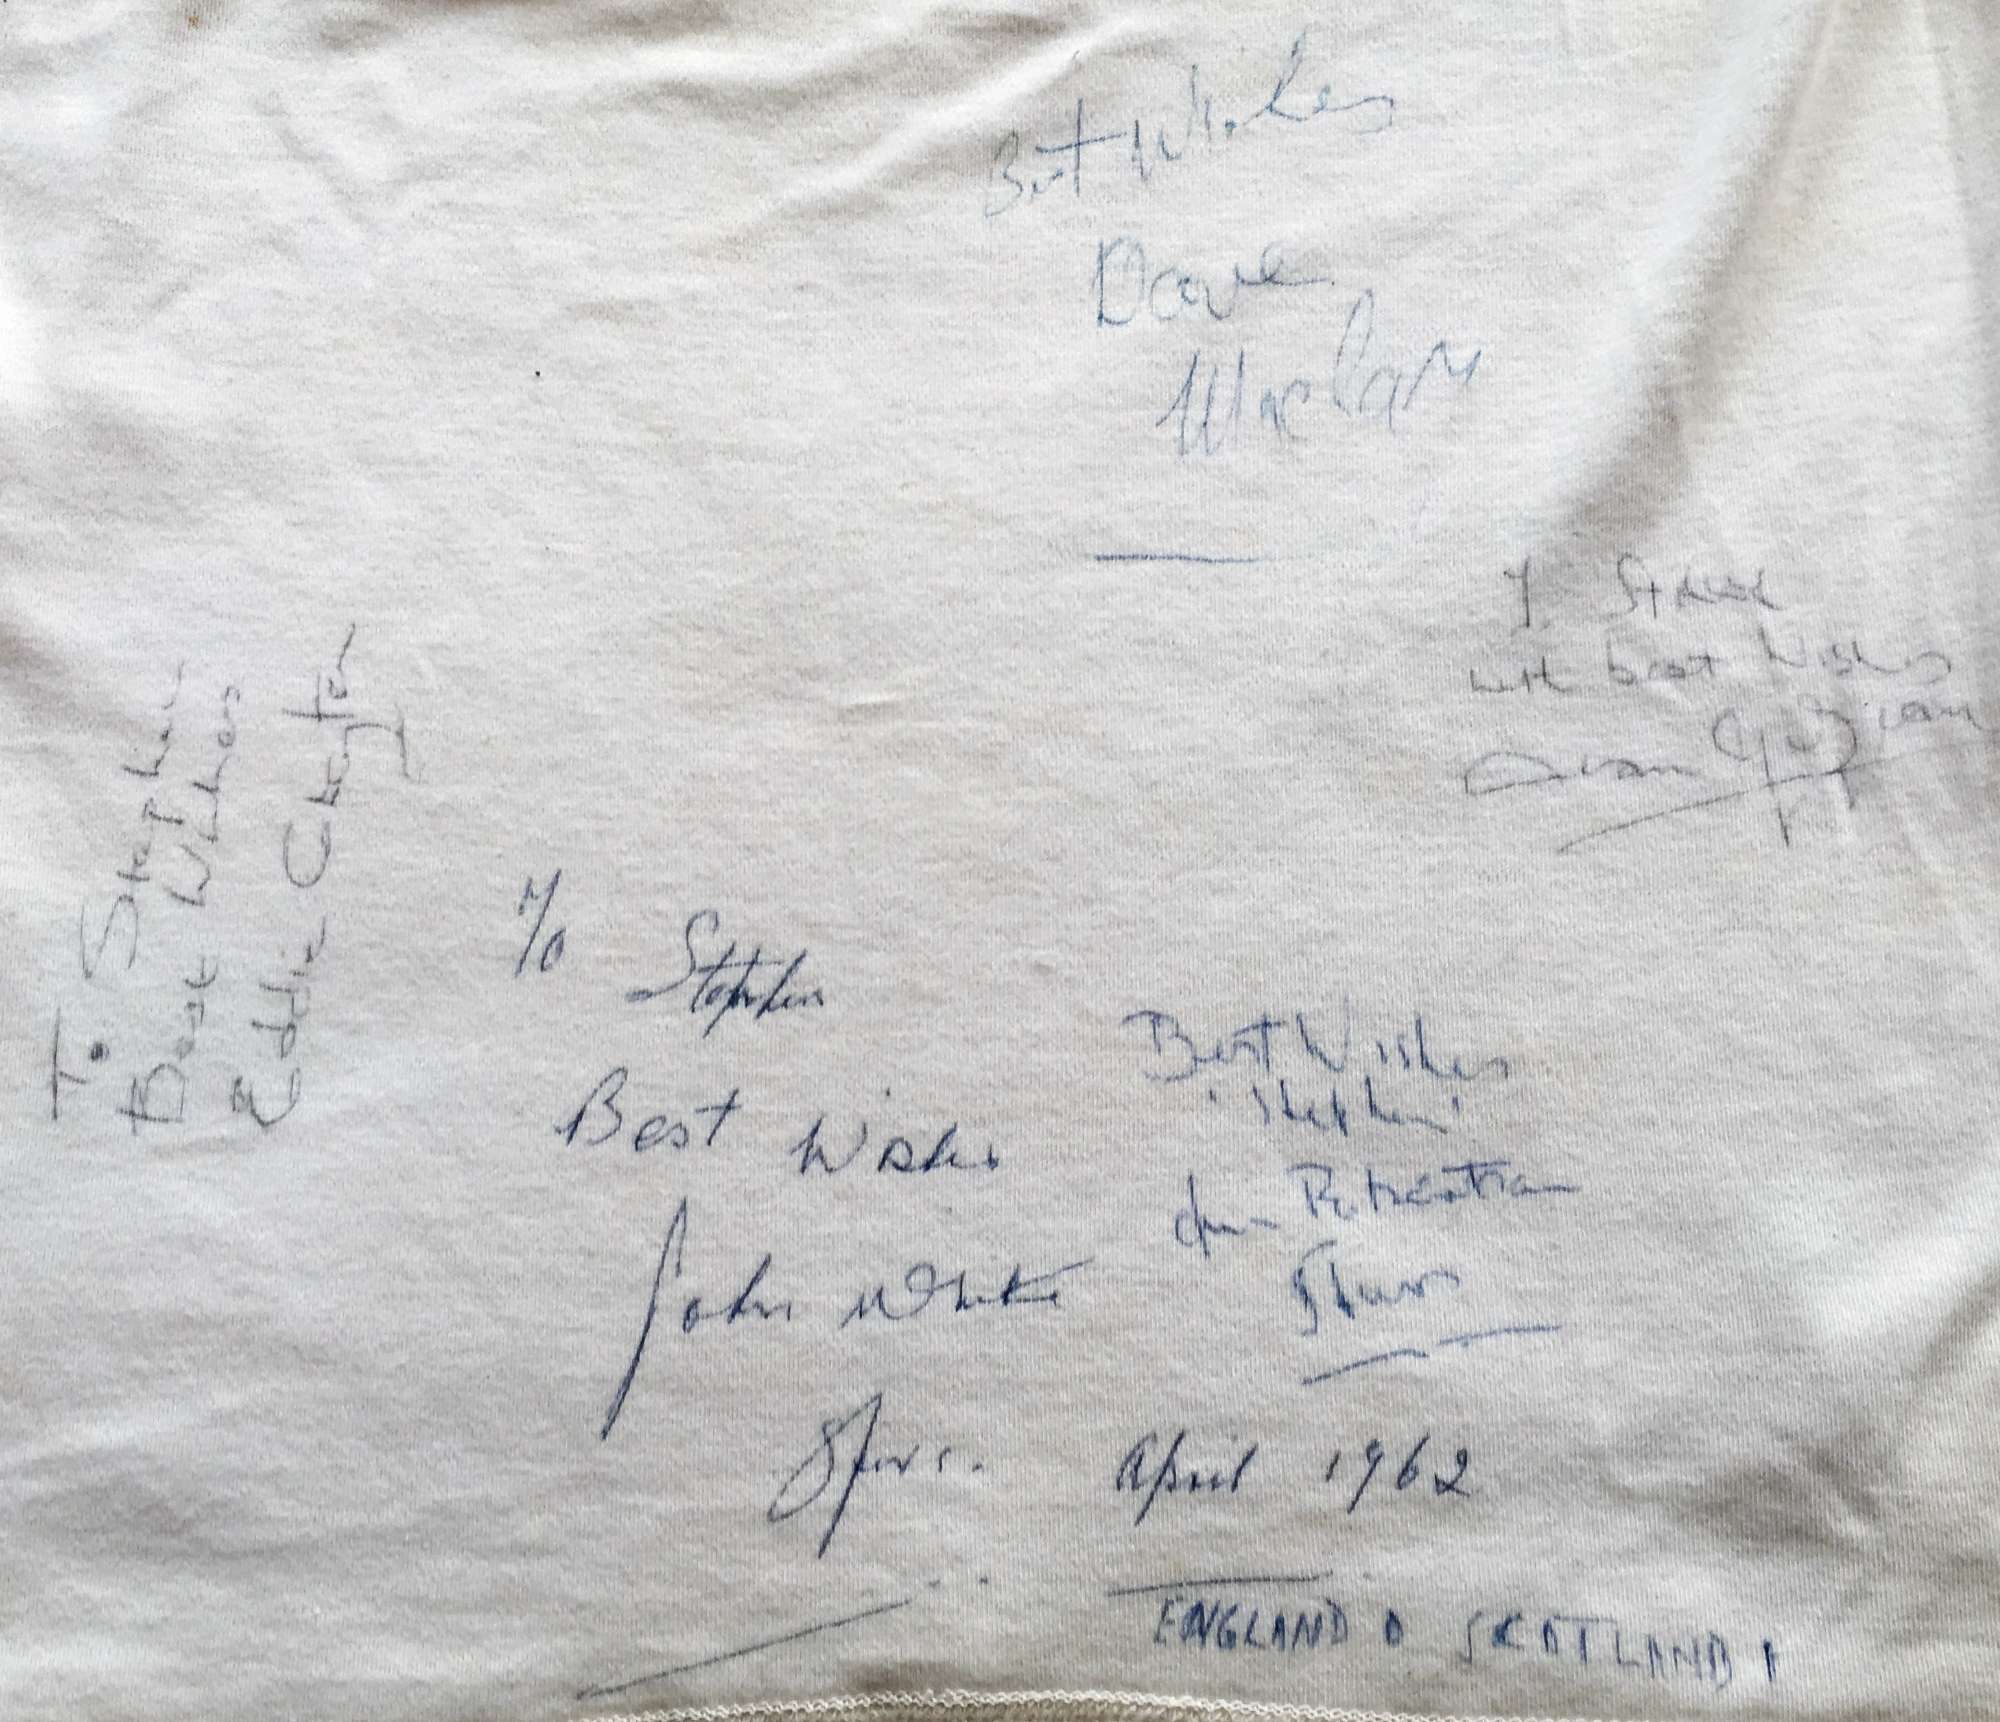 Best Wishes
Dave
Mackay
To Steve
with best Wishes
Alan Gilzean
To Stephen
Best Wishes
Eddie Clayton
T/O Stephen
Best Wishes
John White
Spurs.
April 1962
Best Wishes
'Stephen'
Jim Robertson
Spurs
ENGLAND 0 SCOTLAND 1